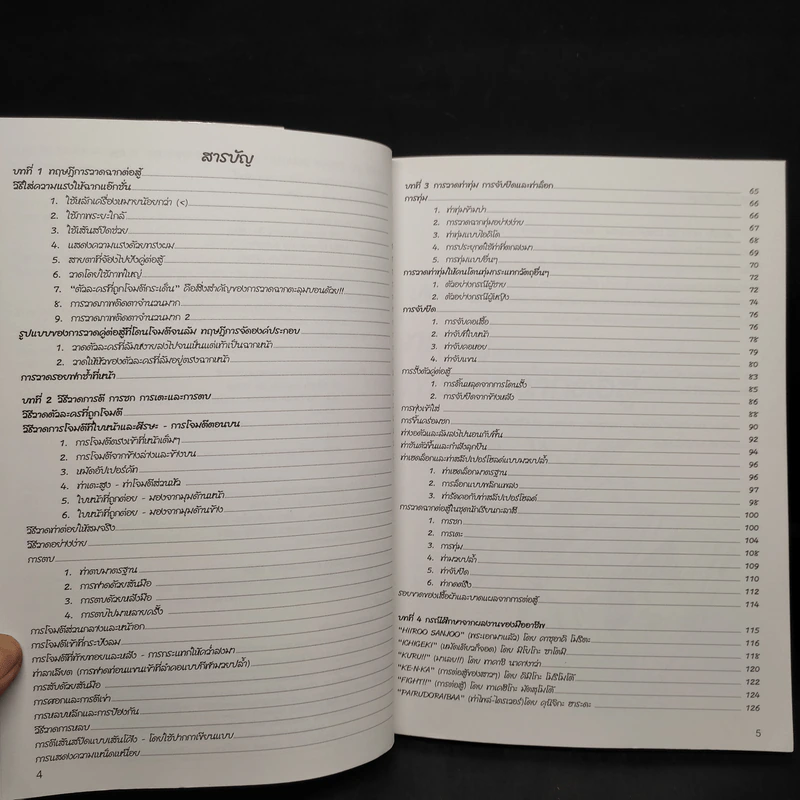 สารบัญ
บทที่ 1 ทฤษฎีการวาดฉากต่อสู้
วิธีใส่ความแรงให้ฉากแอ๊กชั่น
1. ใช้หลักเครื่องหมายน้อยกว่า (<)
2. ใช้ภาพระยะใกล้
3. ใช้เส้นสปีดช่วย
4. แสดงความแรงด้วยทรงผม
5. สายตาที่จ้องไปยังคู่ต่อสู้
6. วาดโดยใช้ภาพใหญ่
7. "ตัวละครที่ถูกโจมตีกระเด็น" คือสิ่งสำคัญของการวาดฉากตะลุมบอนด้วย!!
8. การวาดภาพติดตาจำนวนมาก
9. การวาดภาพติดตาจำนวนมาก 2
รูปแบบของการวาดคู่ต่อสู้ที่โดนโจมตีจนล้ม ทฤษฎีการจัดองค์ประกอบ
1. วาดตัวละครที่ล้มหงายลงไปจนเห็นแต่เท้าเป็นฉากหน้า
2. วาดให้หัวของตัวละครที่ล้มอยู่ตรงฉากหน้า
การวาดรอยฟกช้ำที่หน้า
บทที่ 2 วิธีวาดการตี การชก การเตะและการตบ
วิธีวาดตัวละครที่ถูกโจมตี
วิธีวาดการโจมตีที่ใบหน้าและศีรษะ - การโจมตีตอนบน
1. การโจมตีตรงเข้าที่หน้าเต็มๆ
2. การโจมตีจากข้างล่างและข้างบน
3. หมัดอัปเปอร์คัท
4. ท่าเตะสูง - ท่าโจมตีส่วนหัว
5. ใบหน้าที่ถูกต่อย - มองจากมุมด้านหน้า
6. ใบหน้าที่ถูกต่อย - มองจากมุมด้านข้าง
วิธีวาดท่าต่อยให้สมจริง
วิธีวาดอย่างง่าย
การตบ
1. ท่าตบมาตรฐาน
2. การฟาดด้วยสันมือ
3. การตบด้วยหลังมือ
4. การตบไปมาหลายครั้ง
การโจมตีส่วนกลางและหน้าอก
การโจมตีเข้าที่กระบังลม
การโจมตีที่ท้ายทอยและหลัง - การกระแทกให้คว่ำลงมา
ท่าลาเลียต (การฟาดท่อนแขนเข้าที่ลำคอแบบกีฬามวยปล้ำ)
การสับด้วยสันมือ
การศอกและการตีเข่า
การหลบหลีกและการป้องกัน
วิธีวาดการหลบ
การตีเส้นสปีดแบบเส้นโค้ง - โดยใช้ปากกาเขียนแบบ
การแสดงความเหน็ดเหนื่อย
4
บทที่ 3 การวาดท่าทุ่ม การจับยึดและท่าล็อก 65
การทุ่ม 66
1. ท่าทุ่มข้ามบ่า 66
2. การวาดฉากทุ่มอย่างง่าย 67
3. ท่าทุ่มแบบไอคิโด 68
4. การประยุกต์ใช้ท่าที่ตกลงมา 69
5. การทุ่มแบบอื่นๆ 70
การวาดท่าทุ่มให้คนโดนทุ่มกระแทกวัตถุอื่นๆ 72
1. ตัวอย่างกรณีผู้ชาย 72
2. ตัวอย่างกรณีผู้หญิง 74
การจับยึด 76
1. การจับคอเสื้อ 76
2. ท่าจับที่ใบหน้า 78
3. ท่าจับคอหอย 79
4. ท่าจับแขน 80
การรั้งตัวคู่ต่อสู้ 83
1. การดิ้นหลุดจากการโดนรั้ง 85
2. การจับยึดจากข้างหลัง 86
การพุ่งเข้าใส่ 88
การขึ้นคร่อมชก 90
ท่างอตัวและล้มลงไปนอนกับพื้น 92
ท่ายันตัวขึ้นและกำลังลุกยืน 94
ท่าเฮดล็อกและท่าสลีปเปอร์โฮลด์แบบมวยปล้ำ 96
1. ท่าเฮดล็อกมาตรฐาน 96
2. การล็อกแบบพลิกแพลง 97
3. ท่ารัดคอกับท่าสลีปเปอร์โฮลด์ 98
การวาดฉากต่อสู้ในชุดนักเรียนกะลาสี 100
1. การชก 100
2. การเตะ 104
3. การทุ่ม 108
4. ท่ามวยปล้ำ 109
5. ท่าจับยึด 110
6. ท่ากดตรึง 112
รอยขาดของเสื้อผ้าและบาดแผลจากการต่อสู้ 114
บทที่ 4 กรณีศึกษาจากผลงานของมืออาชีพ 115
"HIIROO SANJOO" (พระเอกมาแล้ว) โดย คาซุอากิ โมริตะ 116
"ICHIGEKI" (หมัดเดียวก็จอด) โดย มิโบโกะ ซาโตมิ 118
"KURU!!" (มาเลย!!) โดย ทาคาชิ นาคางาว่า 120
"KE-N-KA" (การต่อสู้ของสาวๆ) โดย อิมิโกะ โมริโมโต้ 122
"FIGHT!!!" (การต่อสู้) โดย ทาเคฮิโกะ มัตสุโมโต้ 124
"PAIRUDORAIBAA" (ท่าไพล์-ไดรเวอร์)โดย คุนิจิกะ ฮาระดะ 126
5